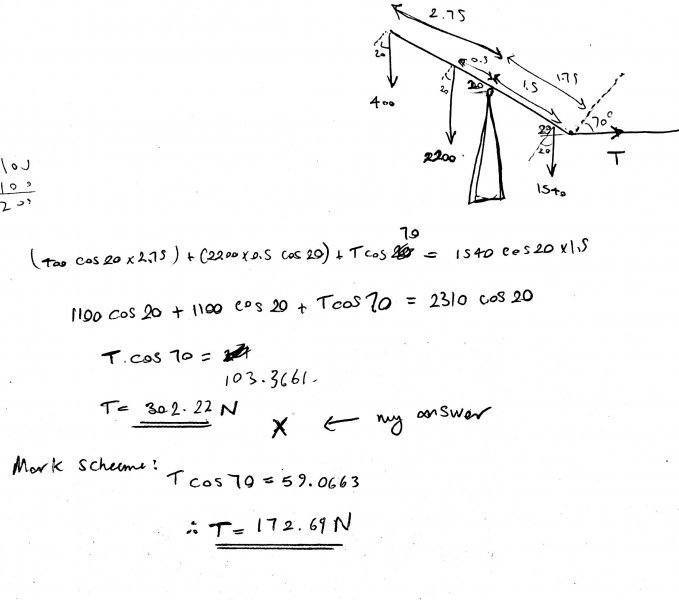 2.75
0.5
1.75
1.5
20
400
20
20
2200
20
20
1540
70°
T
100
100
200
(400 cos 20 × 2.75) + (2200 × 0.5 cos 20) + T cos 70 = 1540 cos 20 × 1.5
1100 cos 20 + 1100 cos 20 + T cos 70 = 2310 cos 20
T. cos 70 =
103.3661.
T = 302.22 N X ← my answer
Mark scheme:
T cos 70 = 59.0663
∴ T = 172.69 N